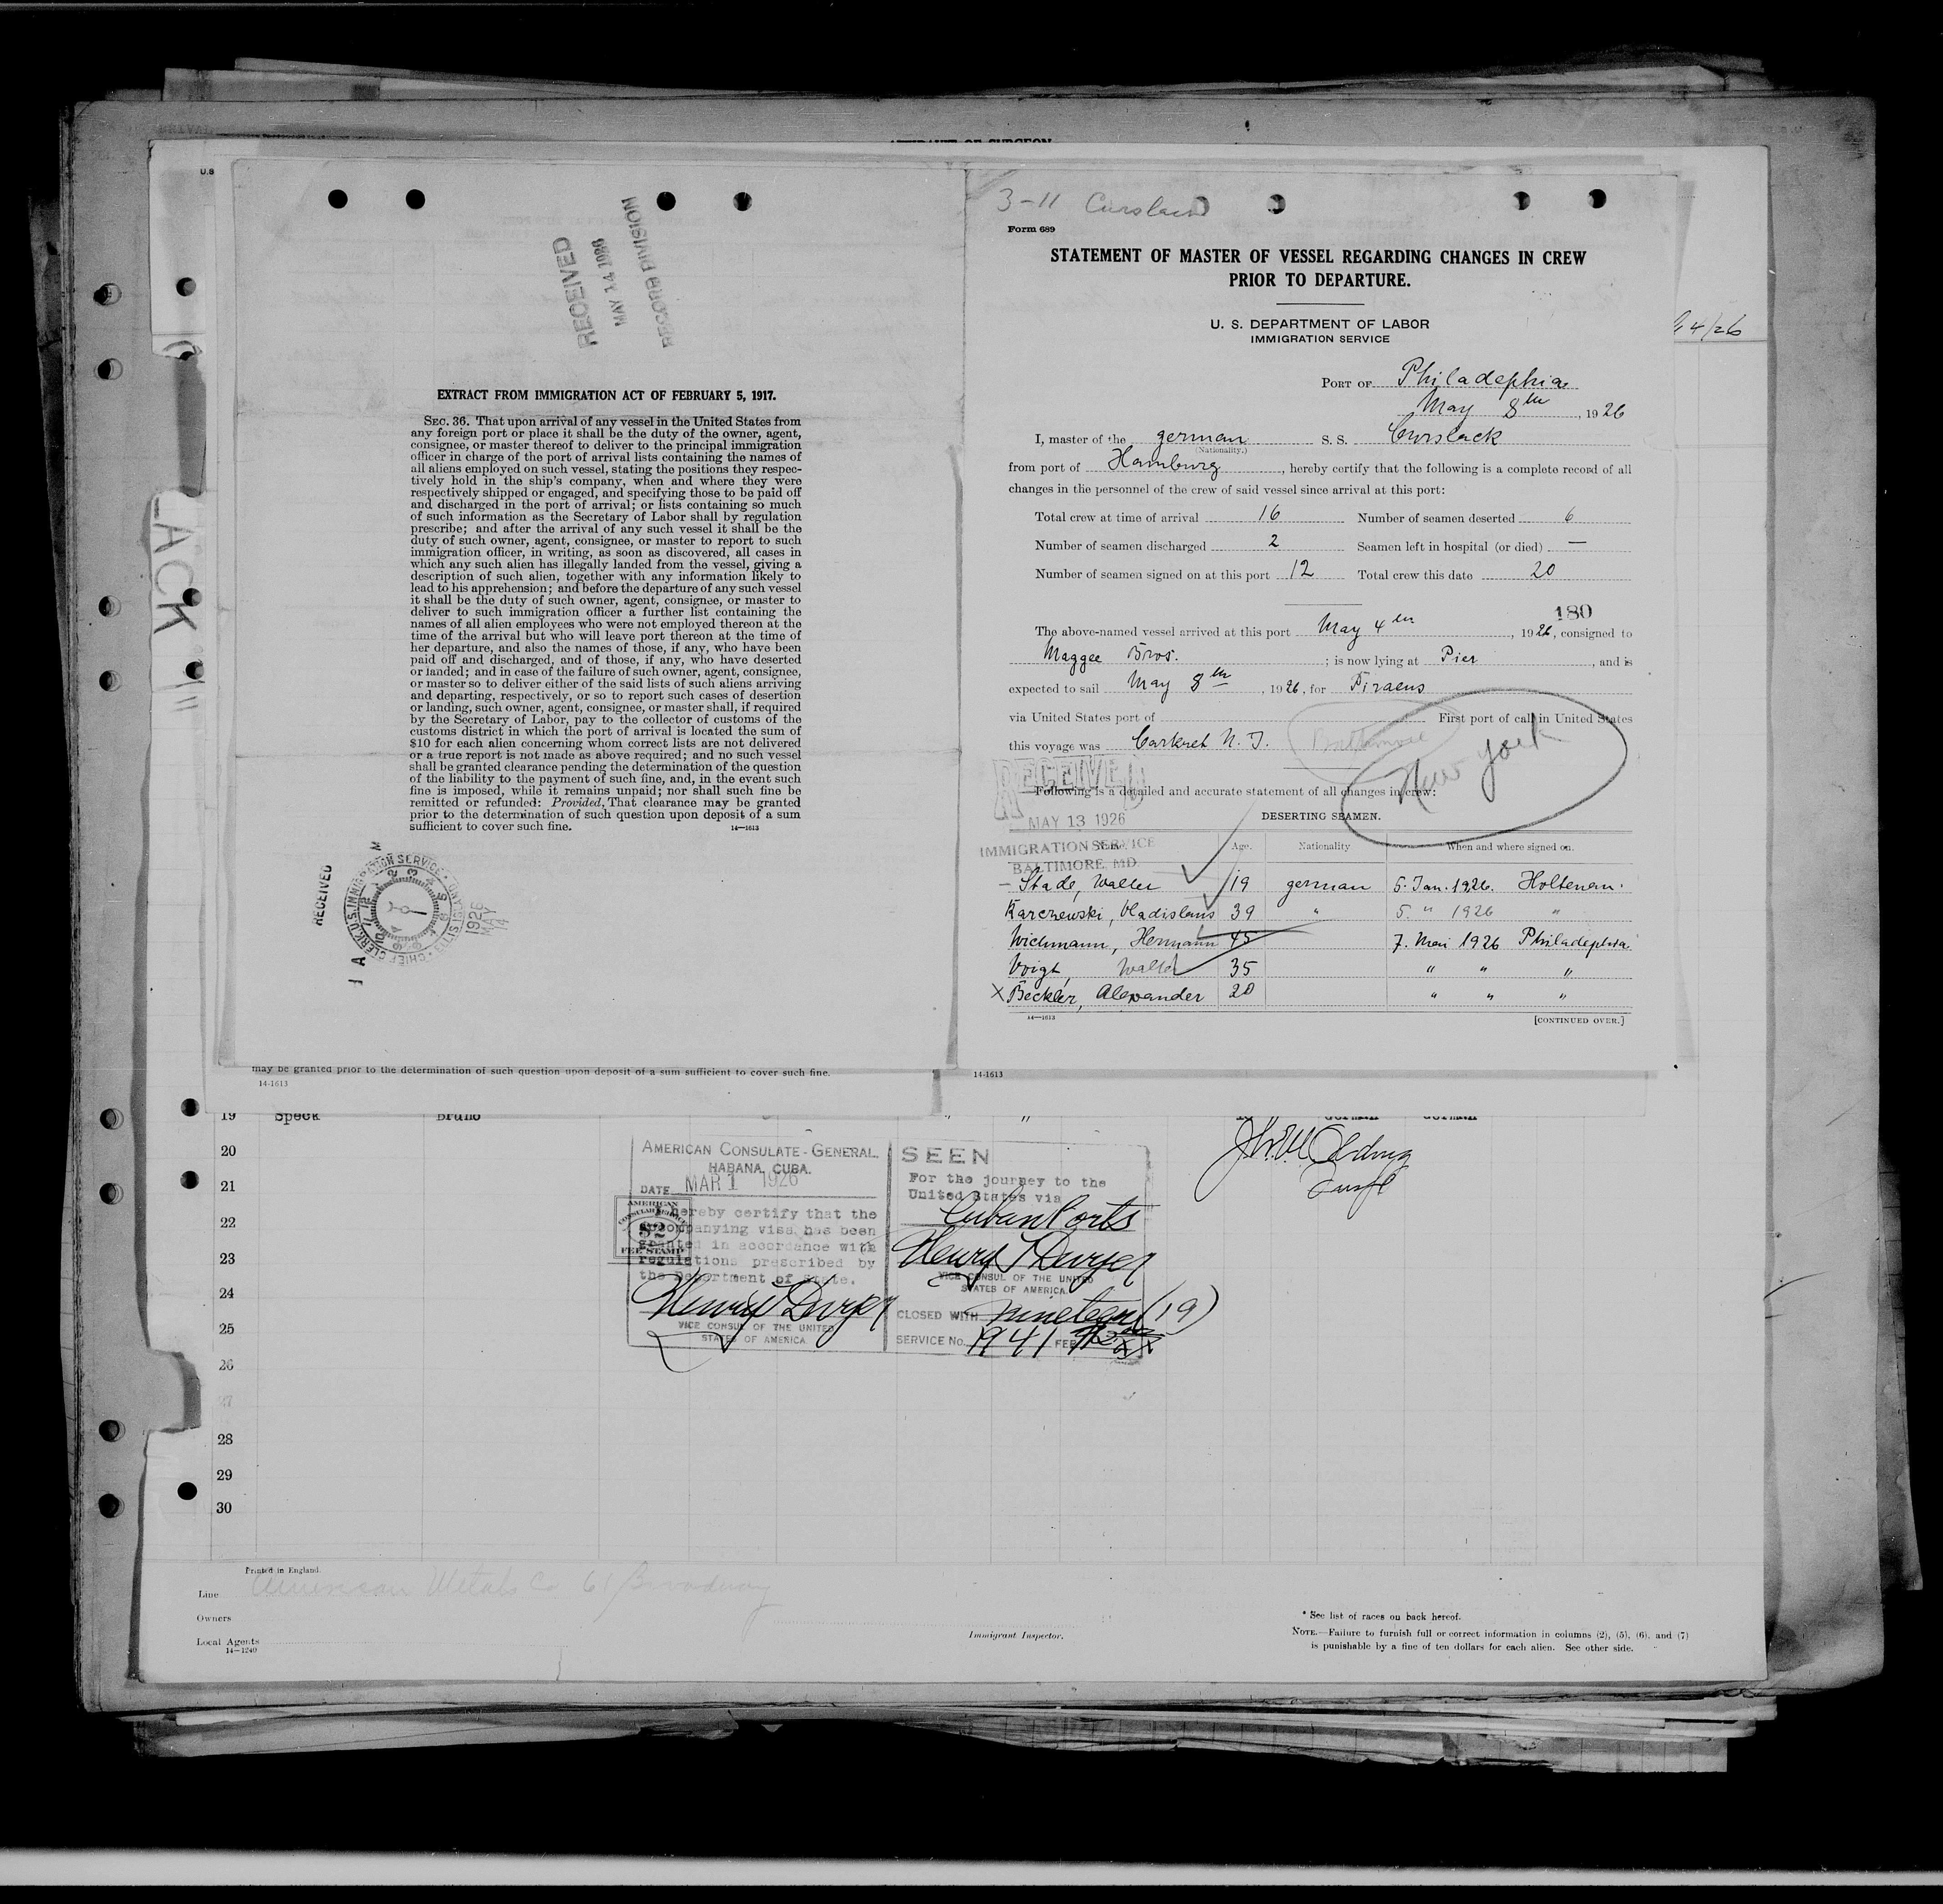 U.S
RECEIVED
MAY 14 1926
RECORD DIVISION
EXTRACT FROM IMMIGRATION ACT OF FEBRUARY 5, 1917.
SEC. 36. That upon arrival of any vessel in the United States from
any foreign port or place it shall be the duty of the owner, agent,
consignee, or master thereof to deliver to the principal immigration
officer in charge of the port of arrival lists containing the names of
all aliens employed on such vessel, stating the positions they respec-
tively hold in the ship's company, when and where they were
respectively shipped or engaged, and specifying those to be paid off
and discharged in the port of arrival; or lists containing so much
of such information as the Secretary of Labor shall by regulation
prescribe; and after the arrival of any such vessel it shall be the
duty of such owner, agent, consignee, or master to report to such
immigration officer, in writing, as soon as discovered, all cases in
which any such alien has illegally landed from the vessel, giving a
description of such alien, together with any information likely to
lead to his apprehension; and before the departure of any such vessel
it shall be the duty of such owner, agent, consignee, or master to
deliver to such immigration officer a further list containing the
names of all alien employees who were not employed thereon at the
time of the arrival but who will leave port thereon at the time of
her departure, and also the names of those, if any, who have been
paid off and discharged, and of those, if any, who have deserted
or landed; and in case of the failure of such owner, agent, consignee,
or master so to deliver either of the said lists of such aliens arriving
and departing, respectively, or so to report such cases of desertion
or landing, such owner, agent, consignee, or master shall, if required
by the Secretary of Labor, pay to the collector of customs of the
customs district in which the port of arrival is located the sum of
$10 for each alien concerning whom correct lists are not delivered
or a true report is not made as above required; and no such vessel
shall be granted clearance pending the determination of the question
of the liability to the payment of such fine, and, in the event such
fine is imposed, while it remains unpaid; nor shall such fine be
remitted or refunded: Provided, That clearance may be granted
prior to the determination of such question upon deposit of a sum
sufficient to cover such fine.
14—1613
RECEIVED
CHIEF CLERK U.S. IMMIGRATION SERVICE
1926 MAY 14
LACK
3-11 Curslack
Form 689
STATEMENT OF MASTER OF VESSEL REGARDING CHANGES IN CREW
PRIOR TO DEPARTURE.
U. S. DEPARTMENT OF LABOR
IMMIGRATION SERVICE
4/26
PORT OF Philadephia
May 8th, 1926
I, master of the german S. S. Curslack
(Nationality.)
from port of Hamburg, hereby certify that the following is a complete record of all
changes in the personnel of the crew of said vessel since arrival at this port:
Total crew at time of arrival 16 Number of seamen deserted 6
Number of seamen discharged 2 Seamen left in hospital (or died) —
Number of seamen signed on at this port 12 Total crew this date 20
180
The above-named vessel arrived at this port May 4th, 1926, consigned to
Maggee Bros. ; is now lying at Pier, and is
expected to sail May 8th, 1926, for Piraeus
via United States port of First port of call in United States
this voyage was Carteret N. J. Baltimore New York
Following is a detailed and accurate statement of all changes in crew:
RECEIVED
MAY 13 1926
IMMIGRATION SERVICE
BALTIMORE, MD
DESERTING SEAMEN.
Name. Age. Nationality When and where signed on.
Stade, Walter 19 german 5. Jan. 1926. Holtenau.
Karczewski, Vladislaus 39 " 5. " 1926 "
Wichmann, Hermann 45 7. Mai 1926 Philadephia
Voigt, Walter 35 " " "
X Beckler, Alexander 20 " " "
14—1613
[CONTINUED OVER.]
may be granted prior to the determination of such question upon deposit of a sum sufficient to cover such fine.
14-1613
14-1613
19 Speck Bruno " " German German
20
21
22
23
24
25
26
27
28
29
30
AMERICAN CONSULATE-GENERAL.
HABANA, CUBA.
DATE MAR 1 1926
I hereby certify that the
accompanying visa has been
granted in accordance with
regulations prescribed by
the Department of State.
AMERICAN
CONSULAR SERVICE
$2
FEE STAMP
Henry T Dwyer
VICE CONSUL OF THE UNITED
STATES OF AMERICA.
SEEN
For the journey to the
United States via
Cuban Ports
Henry T Dwyer
VICE CONSUL OF THE UNITED
STATES OF AMERICA.
CLOSED WITH nineteen (19)
SERVICE No. 1941 FEE $2.00
Printed in England.
Line American Metals Co 61 Broadway
Owners
Local Agents
14—1240
Immigrant Inspector.
* See list of races on back hereof.
NOTE.—Failure to furnish full or correct information in columns (2), (5), (6), and (7)
is punishable by a fine of ten dollars for each alien. See other side.